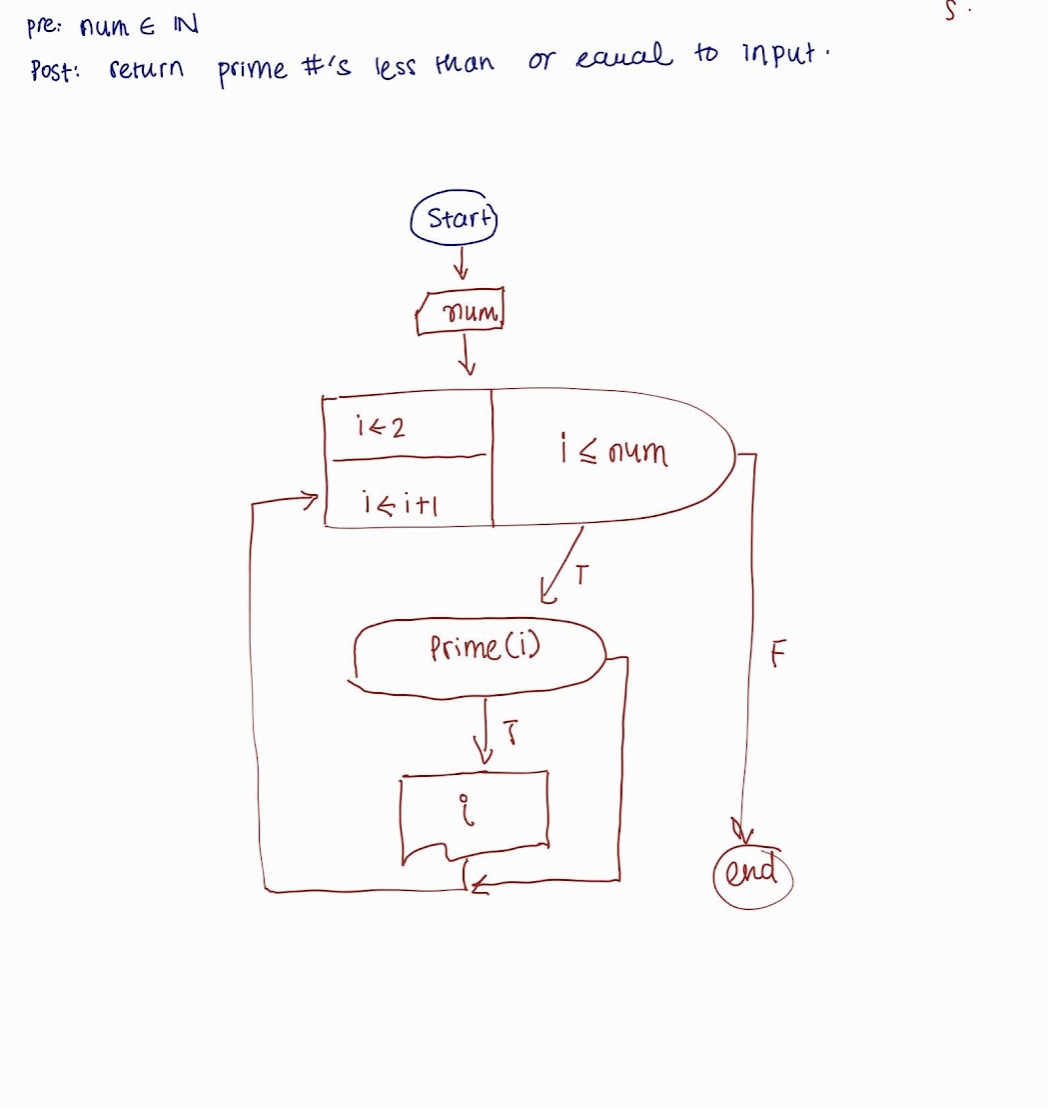 pre: num ∈ ℕ
s.
Post: return prime #'s less than or equal to input.
Start
num
i←2
i≤num
i←i+1
T
Prime(i)
F
T
i
end